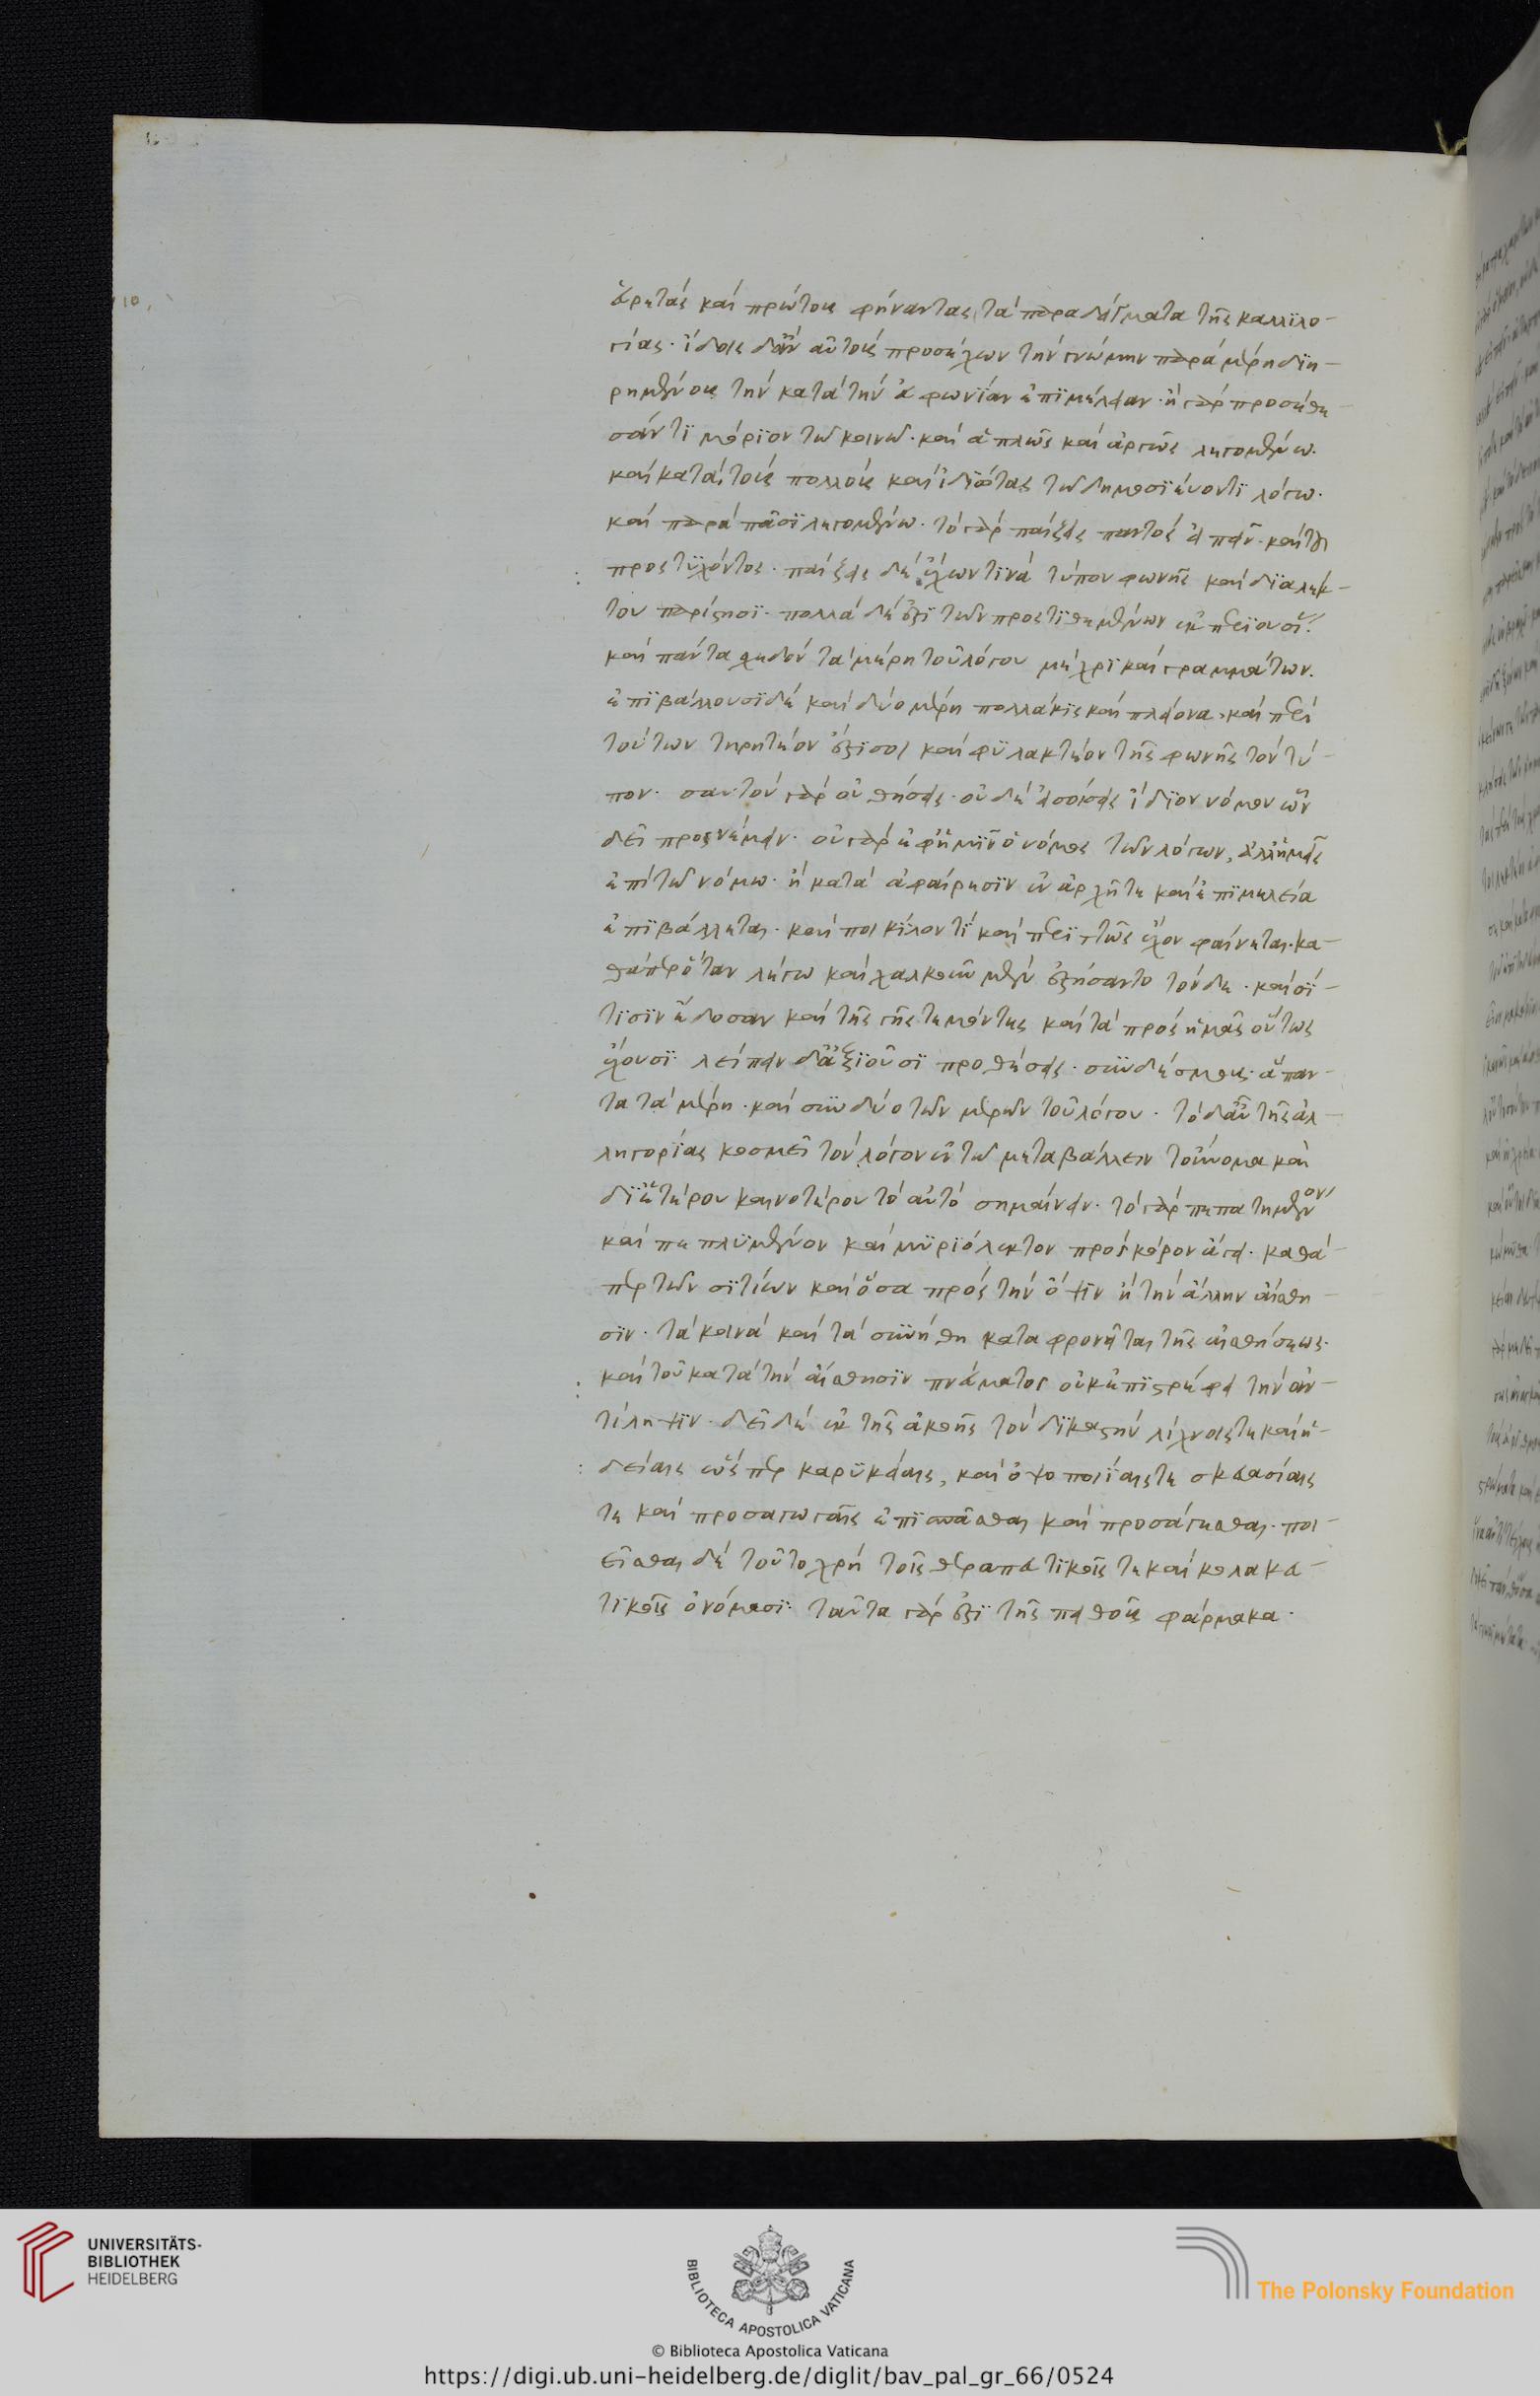 10,
ἀρετὰς καὶ πρώτους φήναντας τὰ παραδείγματα τῆς καλλϊλο-
γίας. ἴδοις δ' ἂν αὐτοὺς προσέχων τὴν γνώμην παρὰ μέρη διη-
ρημένους τὴν κατὰ τὴν φωνϊὰν ἐπϊμέλειαν. ἢ γὰρ προσέθε-
σάν τϊ μόρϊον τῶ κοινῶ. καὶ ἁπλῶς καὶ ἀργῶς λεγομένω.
καὶ κατὰ τοὺς πολλοὺς καὶ ἰδϊώτας τῶ δημοσϊεύοντϊ λόγω.
καὶ παρὰ πᾶσϊ λεγομένω. τὸ γὰρ παίζεις παντὸς εἰπεῖν. καὶ τοῦ
προστϋχόντος. παίζεις δὲ ἔχων τϊνὰ τύπον φωνῆς καὶ δϊαλέκ-
του παρίςησϊ. πολλὰ δέ ἐςϊ τῶν προςτϊθεμένων ἐκ πεϊουσΐ.
καὶ πάντα σχεδὸν τὰ μέρη τοῦ λόγου μέχρϊ καὶ γραμμάτων.
ἐπϊβάλλουσϊ δὲ καὶ δύο μέρη πολλάκϊς καὶ πλείονα. καὶ περὶ
τούτων τηρητέον ἐςΐ σοι καὶ φϋλακτέον τῆς φωνῆς τὸν τύ-
πον. σαυτὸν γὰρ οὐ θήσεις. οὐδὲ εἰσοίσεις ἴδϊον νόμον ὧν
δεῖ προςνέμειν. οὐ γὰρ ἐφ' ἡμῖν ὁ νόμος τῶν λόγων, ἀλλ' ἡμεῖς
ἐπὶ τῶ νόμω. ἢ κατὰ ἀφαίρεσϊν ἐν ἀρχῆ τε καὶ ἐπϊμελεία
ἐπϊβάλλεται. καὶ ποικΐλον τϊ καὶ περϊττῶς ἔχον φαίνεται. κα-
θάπερ ὅταν λέγω καὶ χαλκοῦν μὲν ἐςήσαντο τόνδε. καὶ σΐ-
τϊσϊν ἔδοσαν καὶ τῆς γῆς τεμόντες καὶ τὰ πρὸς ἡμᾶς οὕτως
ἔχουσϊ. λείπειν δ' ἀξϊοῦσϊ προθέσεις. συνδέσμους. ἅπαν-
τα τὰ μέρη. καὶ σὺν δύο τῶν μερῶν τοῦ λόγου. τὸ δ' αὖ τῆς ἀλ-
ληγορΐας κοσμεῖ τὸν λόγον ἐν τῶ μεταβάλλειν τοὔνομα καὶ
δϊ' ἑτέρου καινοτέρου τὸ αὐτὸ σημαίνειν. τὸ γὰρ πεπατημένον
καὶ πεπλϋμένον καὶ μϋρϊόλεκτον πρὸς κόρον ἄγει. καθά-
περ τῶν σϊτίων καὶ ὅσα πρὸς τὴν ὄψϊν ἢ τὴν ἄλλην αἴσθη-
σϊν. τὰ κοινὰ καὶ τὰ συνήθη καταφρονεῖται τῆς αἰσθήσεως.
καὶ τοῦ κατὰ τὴν αἴσθησϊν πνεύματος οὐκ ἐπϊςρέφει τὴν ἀν-
τίληψϊν. δεῖ δὲ ἐκ τῆς ἀκοῆς τὸν δϊκαςὴν λίχνοις τε καὶ ἡ-
δείαις ὥσπερ καρϋκείαις, καὶ ὀψοποιΐαις τε σκευασίαις
τε καὶ προσαγωγαῖς ἐπϊσπᾶσθαι καὶ προσάγεσθαι. ποι-
εῖσθαι δὲ τοῦτο χρὴ τοῖς θεραπευτϊκοῖς τε καὶ κολακευ-
τϊκοῖς ὀνόμασϊ. ταῦτα γάρ ἐςϊ τῆς πειθοῦς φάρμακα.
UNIVERSITÄTS-
BIBLIOTHEK
HEIDELBERG
BIBLIOTECA APOSTOLICA VATICANA
The Polonsky Foundation
© Biblioteca Apostolica Vaticana
https://digi.ub.uni-heidelberg.de/diglit/bav_pal_gr_66/0524